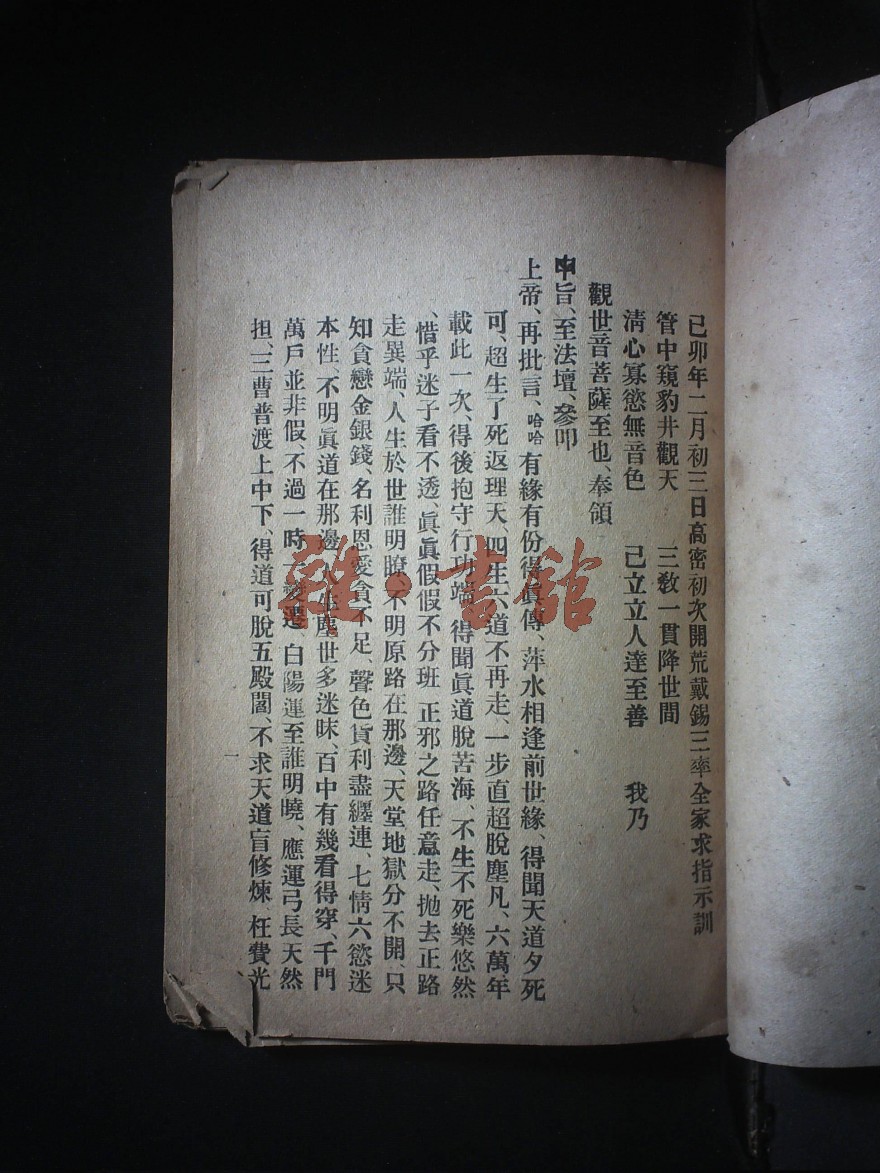 己卯年二月初三日高密初次開荒戴錫三率全家求指示訓
管中窺豹井觀天 三敎一貫降世間
淸心寡慾無音色 己立立人達至善 我乃
觀世音菩薩至也、奉領
申旨、至法壇、參叩
上帝、再批言、哈哈有緣有份得眞傳、萍水相逢前世緣、得聞天道夕死
可、超生了死返理天、四生六道不再走、一步直超脫塵凡、六萬年
載此一次、得後抱守行功端、得聞眞道脫苦海、不生不死樂悠然
、惜乎迷子看不透、眞眞假假不分班 正邪之路任意走、拋去正路
走異端、人生於世誰明瞭、不明原路在那邊、天堂地獄分不開、只
知貪戀金銀錢、名利恩愛貪不足、聲色貨利盡纏連、七情六慾迷
本性、不明眞道在那邊、人生塵世多迷昧、百中有幾看得穿、千門
萬戶並非假、不過一時變遷、白陽運至誰明曉、應運弓長天然
担、三曹普渡上中下、得道可脫五殿閻、不求天道盲修煉、枉費光
一
雜·書館